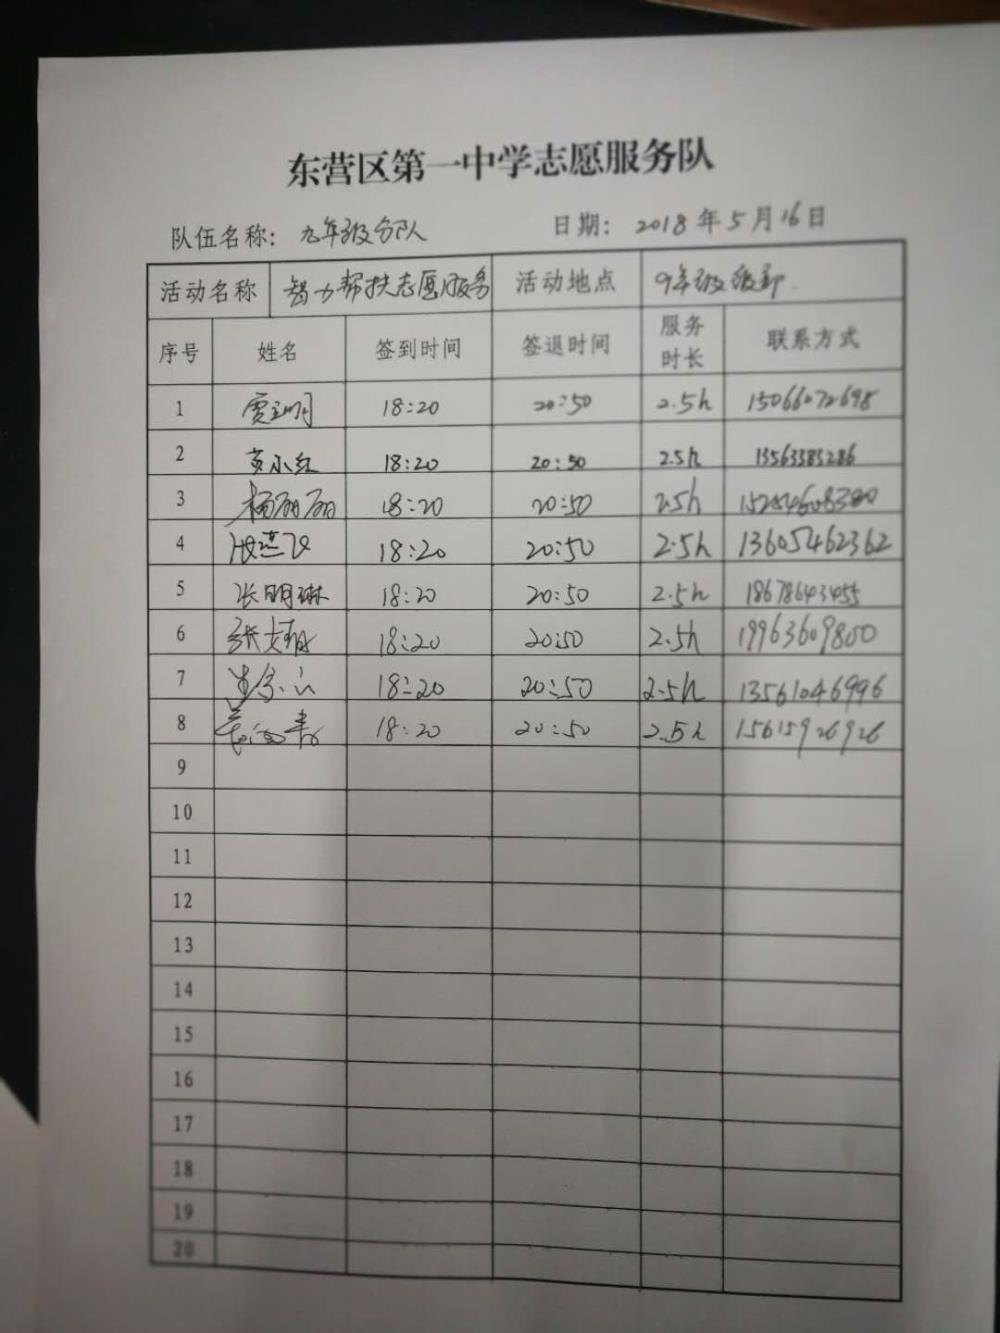 东营区第一中学志愿服务队
队伍名称: 九年级分队 日期: 2018年5月16日
活动名称 智力帮扶志愿服务 活动地点 9年级级部
序号 姓名 签到时间 签退时间 服务时长 联系方式
1 18:20 20:50 2.5h 15066072698
2 黄小红 18:20 20:50 2.5h 13563385286
3 杨丽丽 18:20 20:50 2.5h
4 18:20 20:50 2.5h 13605462362
5 张明琳 18:20 20:50 2.5h 18678643455
6 18:20 20:50 2.5h 19963609800
7 18:20 20:50 2.5h 13561046996
8 18:20 20:50 2.5h 15615926926
9
10
11
12
13
14
15
16
17
18
19
20